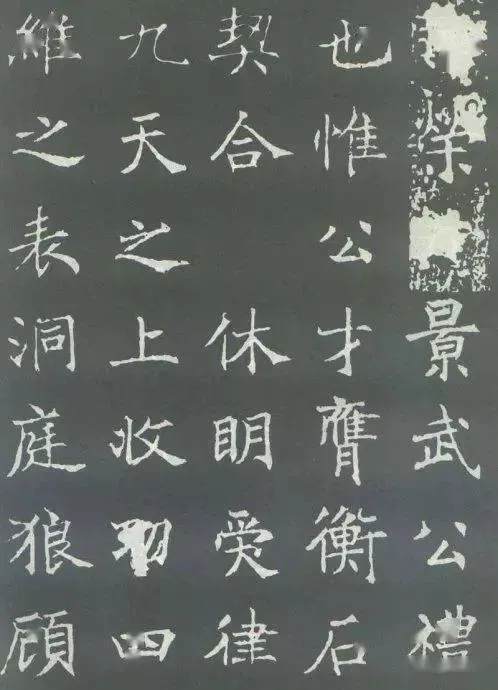 榮景武公禮
也惟公才膺衡石
契合 休明爰律
九天之上收功四
維之表洞庭狼顧